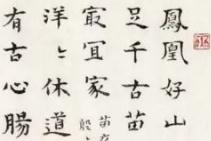 鳳凰好山
足千古苗
寂宜家
洋洋休道
有古心腸